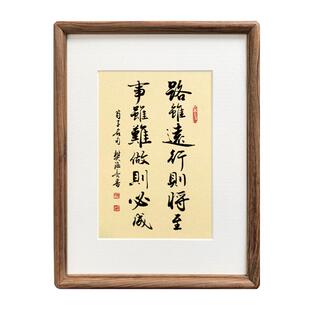 路雖遠行則將至
事雖難做則必成
荀子名句